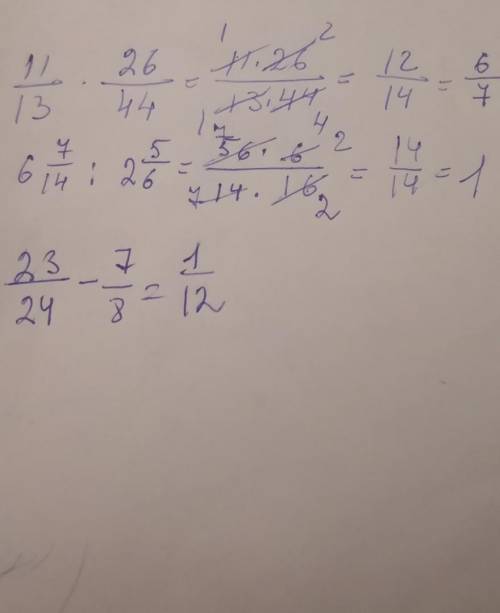 11/13 · 26/44 = 11·26/13·44 = 12/14 = 6/7
6 7/14 : 2 5/6 = 56·6/14·16 = 14/14 = 1
23/24 - 7/8 = 1/12